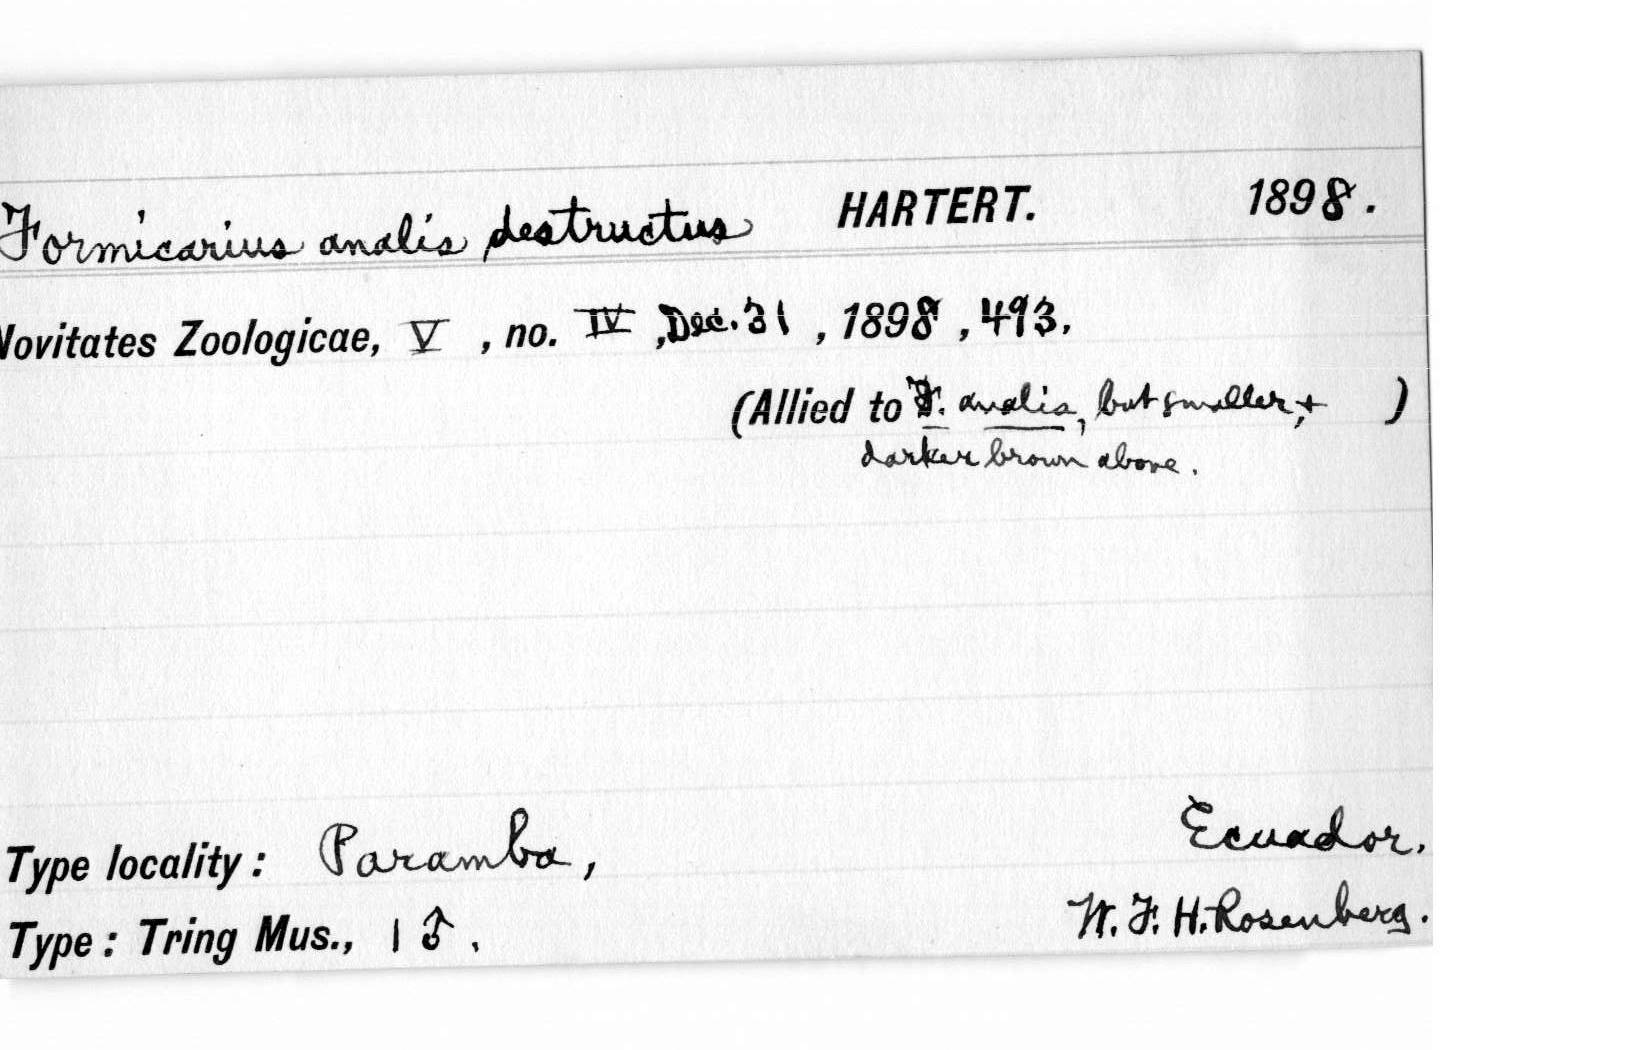 Formicarius analis destructus HARTERT. 1898.
Novitates Zoologicae, V, no. IV, Dec. 31, 1898, 493.
(Allied to F. analis, but smaller, + )
darker brown above.
Type locality: Paramba, Ecuador.
Type: Tring Mus., 1 ♂. W. F. H. Rosenberg.